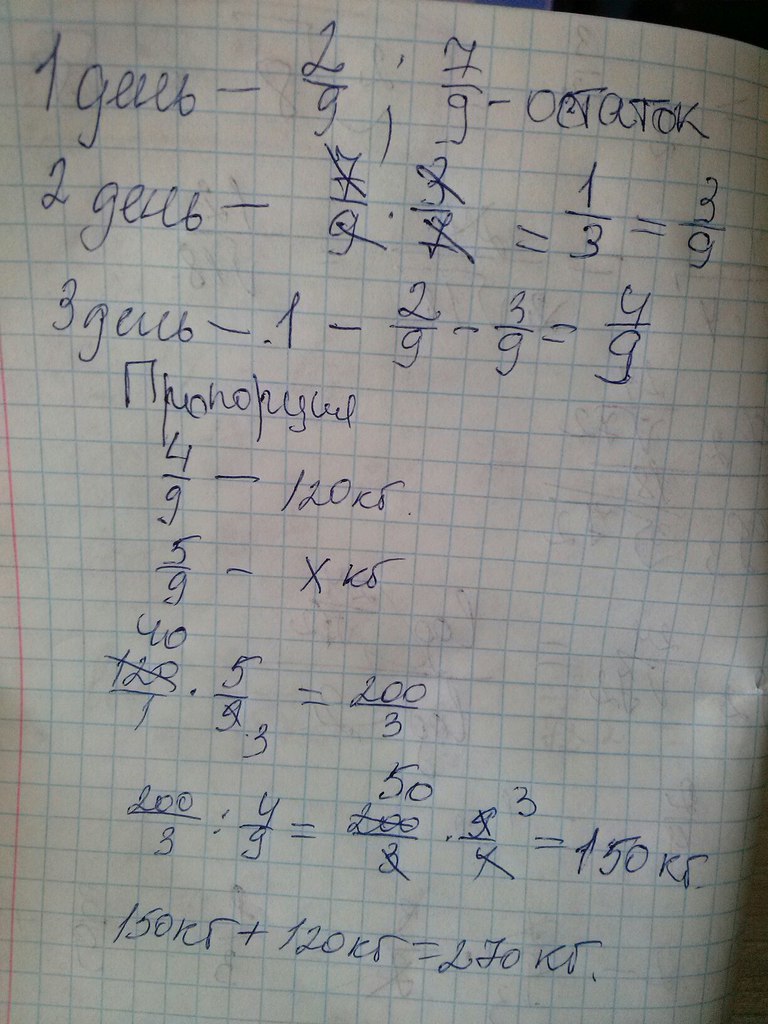 1 день – 2/9 ; 7/9 – остаток
2 день – 7/9 · 3/7 = 1/3 = 3/9
3 день – 1 – 2/9 – 3/9 = 4/9
Пропорция
4/9 – 120 кг.
5/9 – х кг
40
120/1 · 5/9 3 = 200/3
50 3
200/3 : 4/9 = 200/3 · 9/4 = 150 кг.
150 кг + 120 кг = 270 кг.